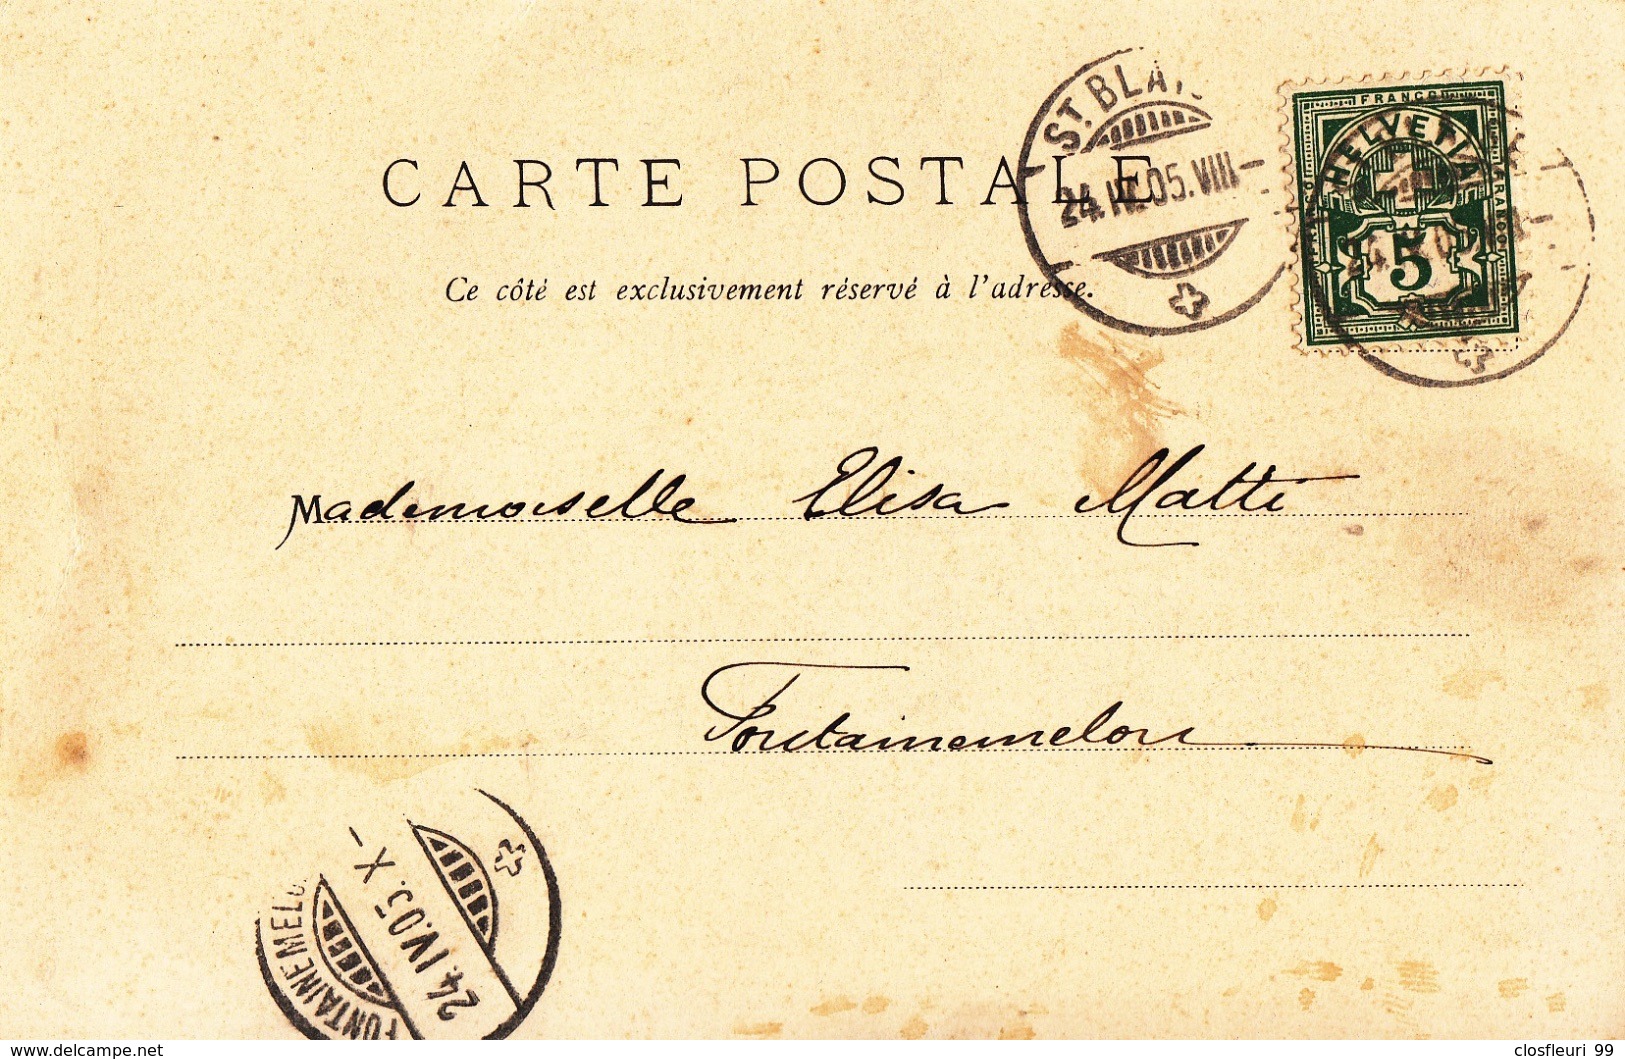 CARTE POSTALE
Ce côté est exclusivement réservé à l'adresse.
ST. BLAI
24. IV. 05. VIII
FRANCO
HELVETIA
FRANCO
FRANCO
5
Mademoiselle Elisa Matti
Fontainemelon
FONTAINEMELO
24. IV. 05. X
www.delcampe.net
closfleuri 99